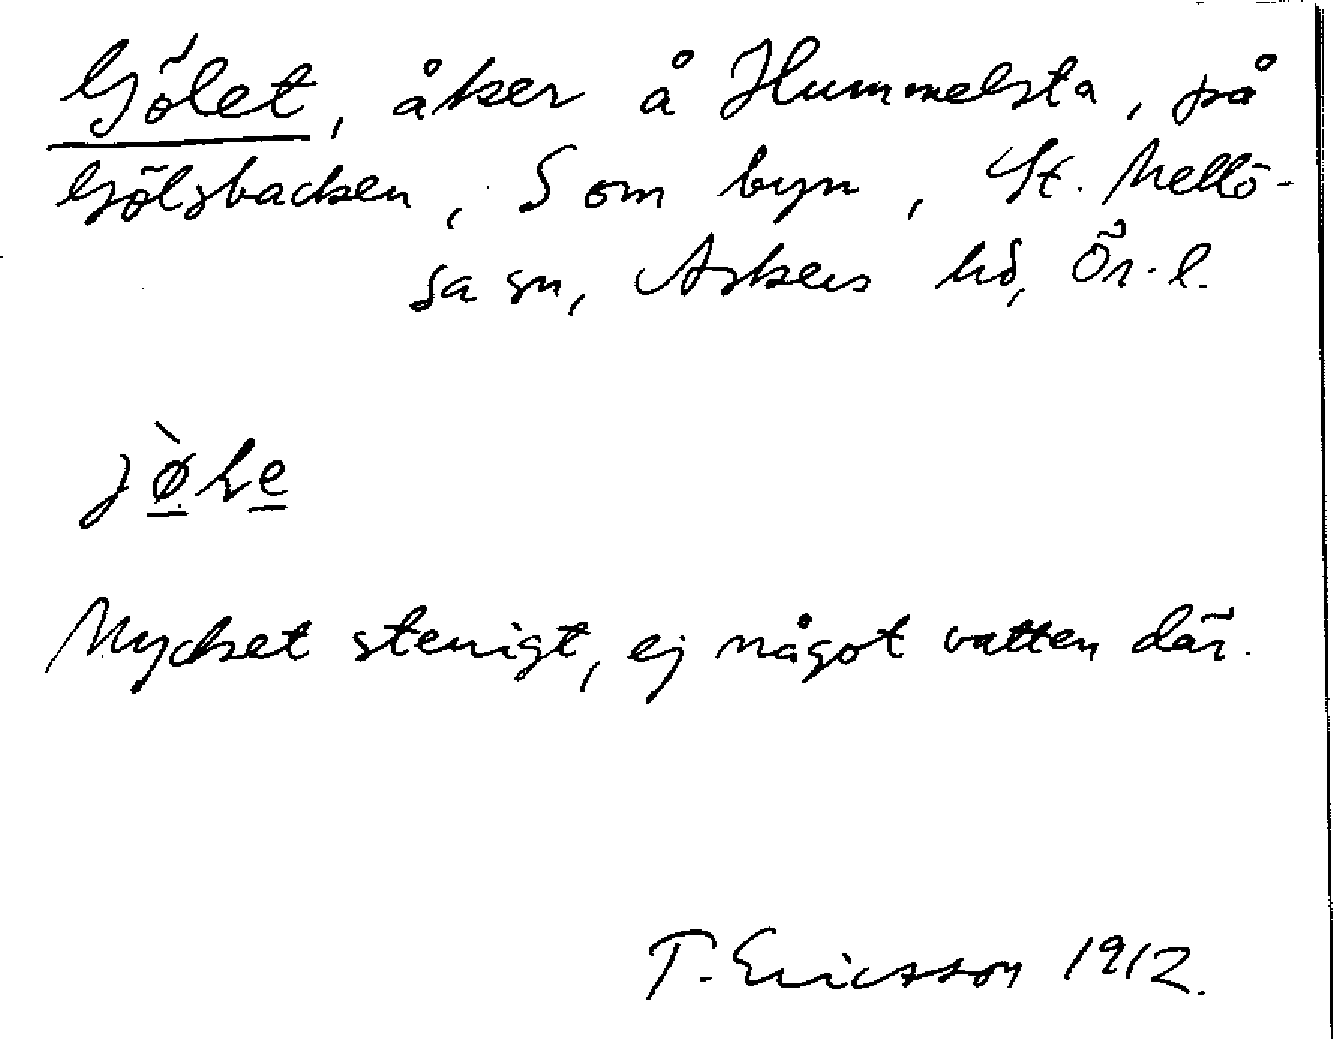 Gölet, åker å Hummelsta, på
Gölsbacken, S om byn, St. Mellö-
sa sn, Askers hd, Ör. l.
jø̀Le
Mycket stenigt, ej något vatten där.
T. Ericsson 1912.